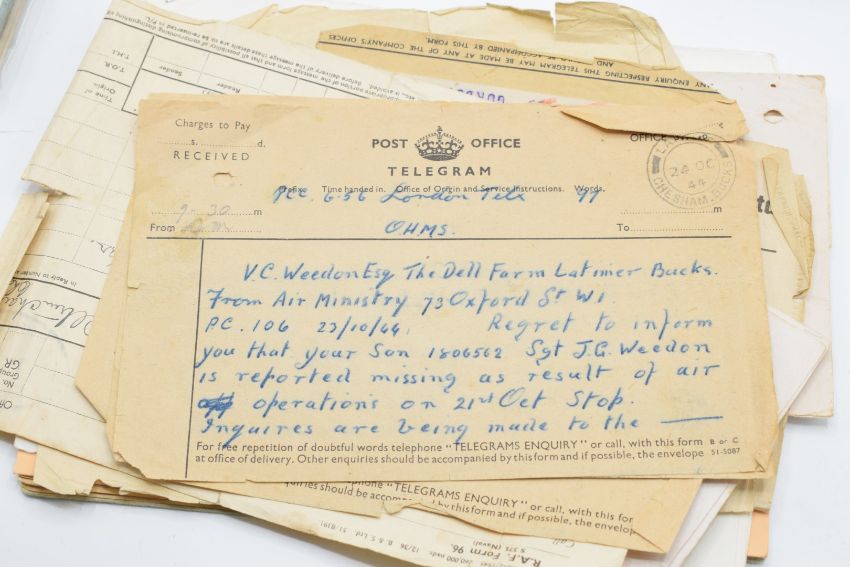 Charges to Pay
s. d.
RECEIVED
POST OFFICE
TELEGRAM
Prefix Time handed in. Office of Origin and Service Instructions. Words.
6.56 London Telx 97
9-30 m
From
OHMS.
24 OC
44
CHESHAM. BUCKS
m
To
V.C. Weedon Esq The Dell Farm Latimer Bucks.
From Air Ministry 73 Oxford St W1.
P.C. 106 23/10/44. Regret to inform
you that your Son 1806562 Sgt J.G. Weedon
is reported missing as result of air
operations on 21st Oct Stop.
Inquires are being made to the
For free repetition of doubtful words telephone "TELEGRAMS ENQUIRY" or call, with this form B or C
at office of delivery. Other enquiries should be accompanied by this form and if possible, the envelope 51-5087
"TELEGRAMS ENQUIRY" or call, with this for
quiries should be accom by this form and if possible, the envelop
R.A.F. Form 96.
(Naval)
ANY ENQUIRY RESPECTING THIS TELEGRAM MAY BE MADE AT ANY OF THE COMPANY'S OFFICES
ACCOMPANIED BY THIS FORM.
AND
T.H.I.
T.O.R.
Time of
Origin
Sender
Reader
In Reply to Number
No.
Group
GR